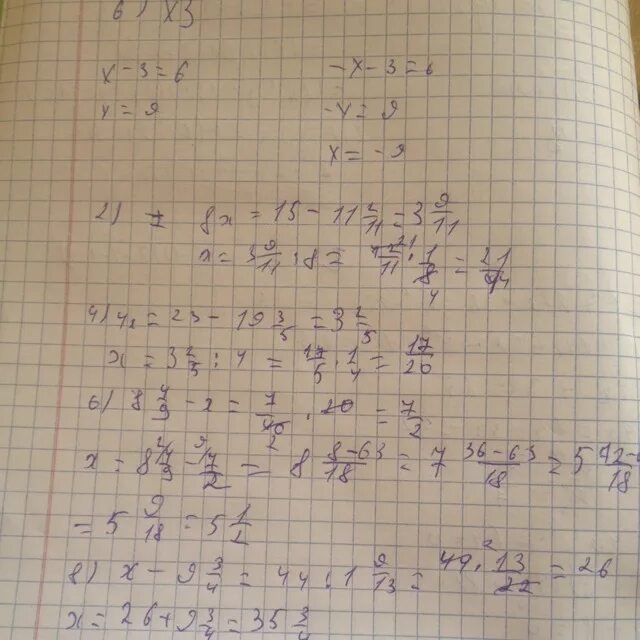 6) x3
x - 3 = 6    -x - 3 = 6
x = 9    -x = 9
x = -9
2) 8x = 15 - 11 2/11 = 3 9/11
x = 3 9/11 : 8 = 42 21/11 · 1/8 4 = 21/44
4) 4x = 23 - 19 3/5 = 3 2/5
x = 3 2/5 : 4 = 17/5 · 1/4 = 17/20
6) 8 4/9 - x = 7/40 2 · 20 = 7/2
x = 8 4/9 - 7 9/2 = 8 8-63/18 = 7 36-63/18 = 5
= 5 9/18 = 5 1/2
8) x - 9 3/4 = 44 : 1 9/13 = 44 2 · 13/22 = 26
x = 26 + 9 3/4 = 35 3/4